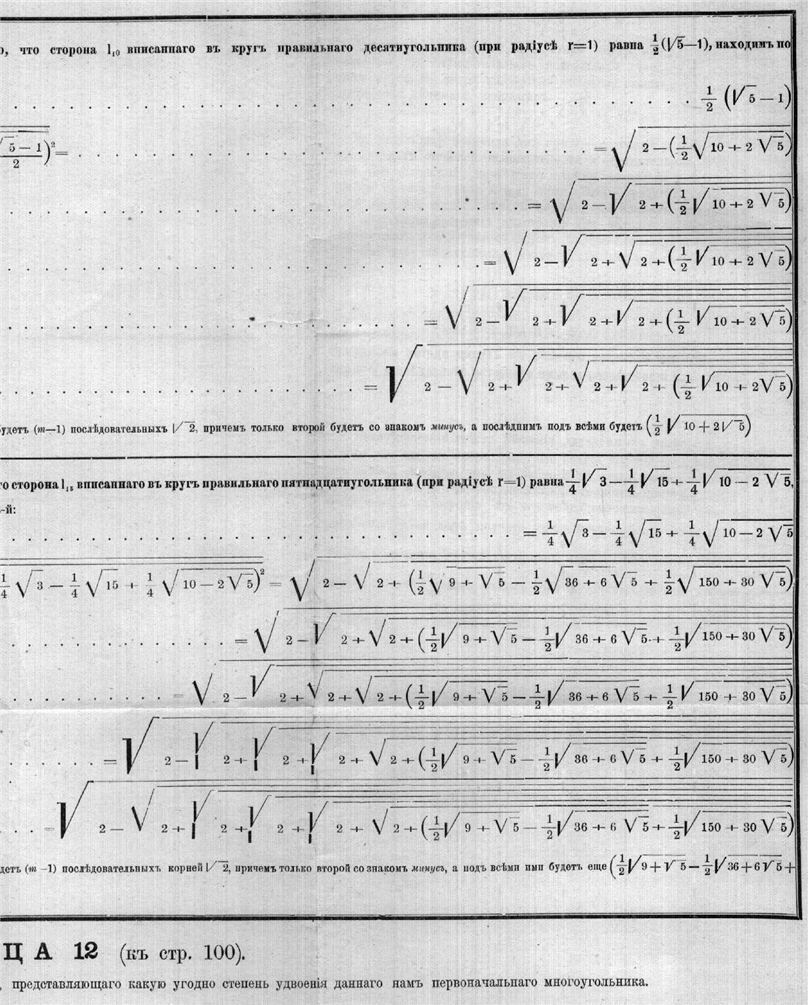 что сторона l₁₀ вписаннаго въ кругъ правильнаго десятиугольника (при радіусѣ r=1) равна 1/2(√5—1), находимъ по
1/2 (√5 − 1)
√5 − 1)²/2 = . . . = √(2 − (1/2 √(10 + 2√5)))
= √(2 − √(2 + (1/2 √(10 + 2√5))))
= √(2 − √(2 + √(2 + (1/2 √(10 + 2√5)))))
= √(2 − √(2 + √(2 + √(2 + (1/2 √(10 + 2√5))))))
= √(2 − √(2 + √(2 + √(2 + √(2 + (1/2 √(10 + 2√5)))))))
будетъ (m—1) послѣдовательныхъ √2, причемъ только второй будетъ со знакомъ минусъ, а послѣднимъ подъ всѣми будетъ (1/2 √(10 + 2√5))
сторона l₁₅ вписаннаго въ кругъ правильнаго пятнадцатиугольника (при радіусѣ r=1) равна 1/4 √3 − 1/4 √15 + 1/4 √(10 − 2√5),
-й:
= 1/4 √3 − 1/4 √15 + 1/4 √(10 − 2√5)
1/4 √3 − 1/4 √15 + 1/4 √(10 − 2√5))² = √(2 − √(2 + (1/2 √(9 + √5) − 1/2 √(36 + 6√5) + 1/2 √(150 + 30√5))))
= √(2 − √(2 + √(2 + (1/2 √(9 + √5) − 1/2 √(36 + 6√5) + 1/2 √(150 + 30√5)))))
= √(2 − √(2 + √(2 + √(2 + (1/2 √(9 + √5) − 1/2 √(36 + 6√5) + 1/2 √(150 + 30√5))))))
= √(2 − √(2 + √(2 + √(2 + √(2 + (1/2 √(9 + √5) − 1/2 √(36 + 6√5) + 1/2 √(150 + 30√5)))))))
= √(2 − √(2 + √(2 + √(2 + √(2 + √(2 + (1/2 √(9 + √5) − 1/2 √(36 + 6√5) + 1/2 √(150 + 30√5))))))))
детъ (m −1) послѣдовательныхъ корней √2, причемъ только второй со знакомъ минусъ, а подъ всѣми ими будетъ еще (1/2 √(9 + √5) − 1/2 √(36 + 6√5) +
ЦА 12 (къ стр. 100).
, представляющаго какую угодно степень удвоенія даннаго намъ первоначальнаго многоугольника.